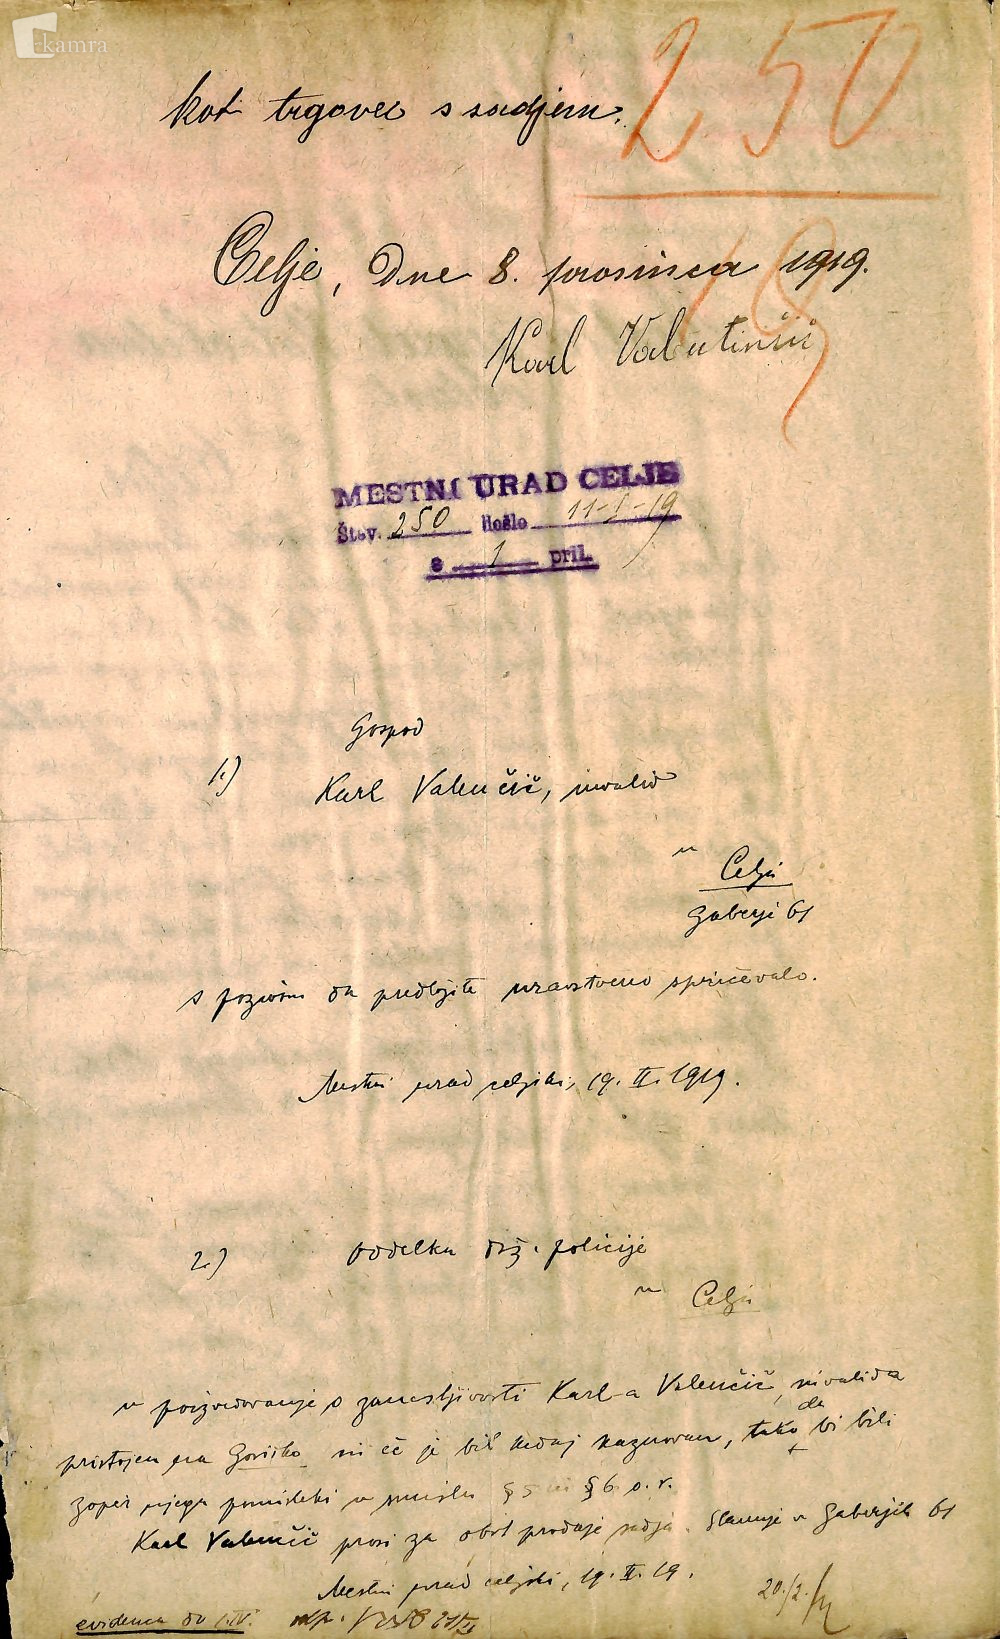 kamra
250
kot trgovec s sadjem.
Celje, Dne 8. prosinca 1919.
Karl Valentinčič
MESTNI URAD CELJE
Štev. 250 došlo 11-I-19
s 1 pril.
Gospod
1.) Karl Valenčič, invalid
v
Celji
Gaberji 61
s pozivom da predložite nravstveno spričevalo.
Mestni urad celjski, 19. II. 1919.
2.) oddelku drž. policije
v Celji
v poizvedovanje o zanesljivosti Karl-a Valenčič, invalida
pristojen na Goriško in če je bil kedaj kaznovan, tako da bi bili
zoper njega pomisleki v smislu § 5 in § 6 o. r.
Karl Valenčič prosi za obrt prodaje sadja. Stanuje v Gaberjih 61
Mestni urad celjski, 19. II. 19.
20./2.
evidenca do 1.IV.